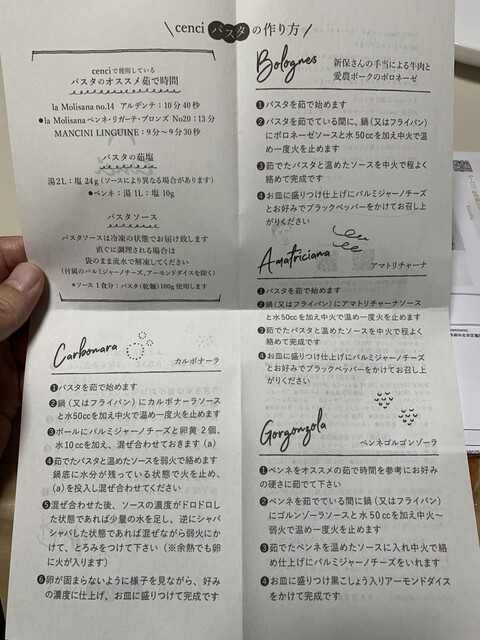 cenci パスタの作り方
cenciで使用している
パスタのオススメ茹で時間
la Molisana no.14 アルデンテ：10分40秒
●la Molisana ペンネ・リガーテ・ブロンズ No20：13分
MANCINI LINGUINE：9分〜9分30秒
パスタの茹塩
湯2L：塩24g（ソースにより異なる場合があります）
●ペンネ：湯 1L：塩 10g
パスタソース
パスタソースは冷凍の状態でお届け致します
直ぐに調理される場合は
袋のまま流水で解凍してください
（付属のパルミジャーノチーズ、アーモンドダイスを除く）
●ソース1食分：パスタ(乾麺)100g使用します
Bolognes
新保さんの手当による牛肉と
愛農ポークのボロネーゼ
❶パスタを茹で始めます
❷パスタを茹でている間に、鍋（又はフライパン）
にボロネーゼソースと水50ccを加え中火で温
め一度火を止めます
❸茹でたパスタと温めたソースを中火で程よく
絡めて完成です
❹お皿に盛りつけ仕上げにパルミジャーノチーズ
とお好みでブラックペッパーをかけてお召し上
がりください
Amatriciana
アマトリチャーナ
❶パスタを茹で始めます
❷鍋（又はフライパン）にアマトリチャーナソース
と水50ccを加え中火で温め一度火を止めます
❸茹でたパスタと温めたソースを中火で程よく
絡めて完成です
❹お皿に盛りつけ仕上げにパルミジャーノチーズ
とお好みでブラックペッパーをかけてお召し上
がりください
Carbonara
カルボナーラ
❶パスタを茹で始めます
❷鍋（又はフライパン）にカルボナーラソース
と水50ccを加え中火で温め一度火を止めます
❸ボールにパルミジャーノチーズと卵黄 2個、
水10ccを加え、混ぜ合わせておきます（a）
❹茹でたパスタと温めたソースを弱火で絡めます
鍋底に水分が残っている状態で火を止め、
（a）を投入し混ぜ合わせてください
❺混ぜ合わせた後、ソースの濃度がドロドロし
た状態であれば少量の水を足し、逆にシャバ
シャバした状態であれば混ぜながら弱火にか
けて、とろみをつけて下さい（※余熱でも卵
に火が入ります）
❻卵が固まらないように様子を見ながら、好み
の濃度に仕上げ、お皿に盛りつけて完成です
Gorgonzola
ペンネゴルゴンゾーラ
❶ペンネをオススメの茹で時間を参考にお好み
の硬さに茹でて下さい
❷ペンネを茹でている間に鍋（又はフライパン）
にゴルゾーラソースと水50ccを加え中火〜
弱火で温め一度火を止めます
❸茹でたペンネを温めたソースに入れ中火で絡
め仕上げにパルミジャーノチーズをいれます
❹お皿に盛りつけ黒こしょう入りアーモンドダイス
をかけて完成です